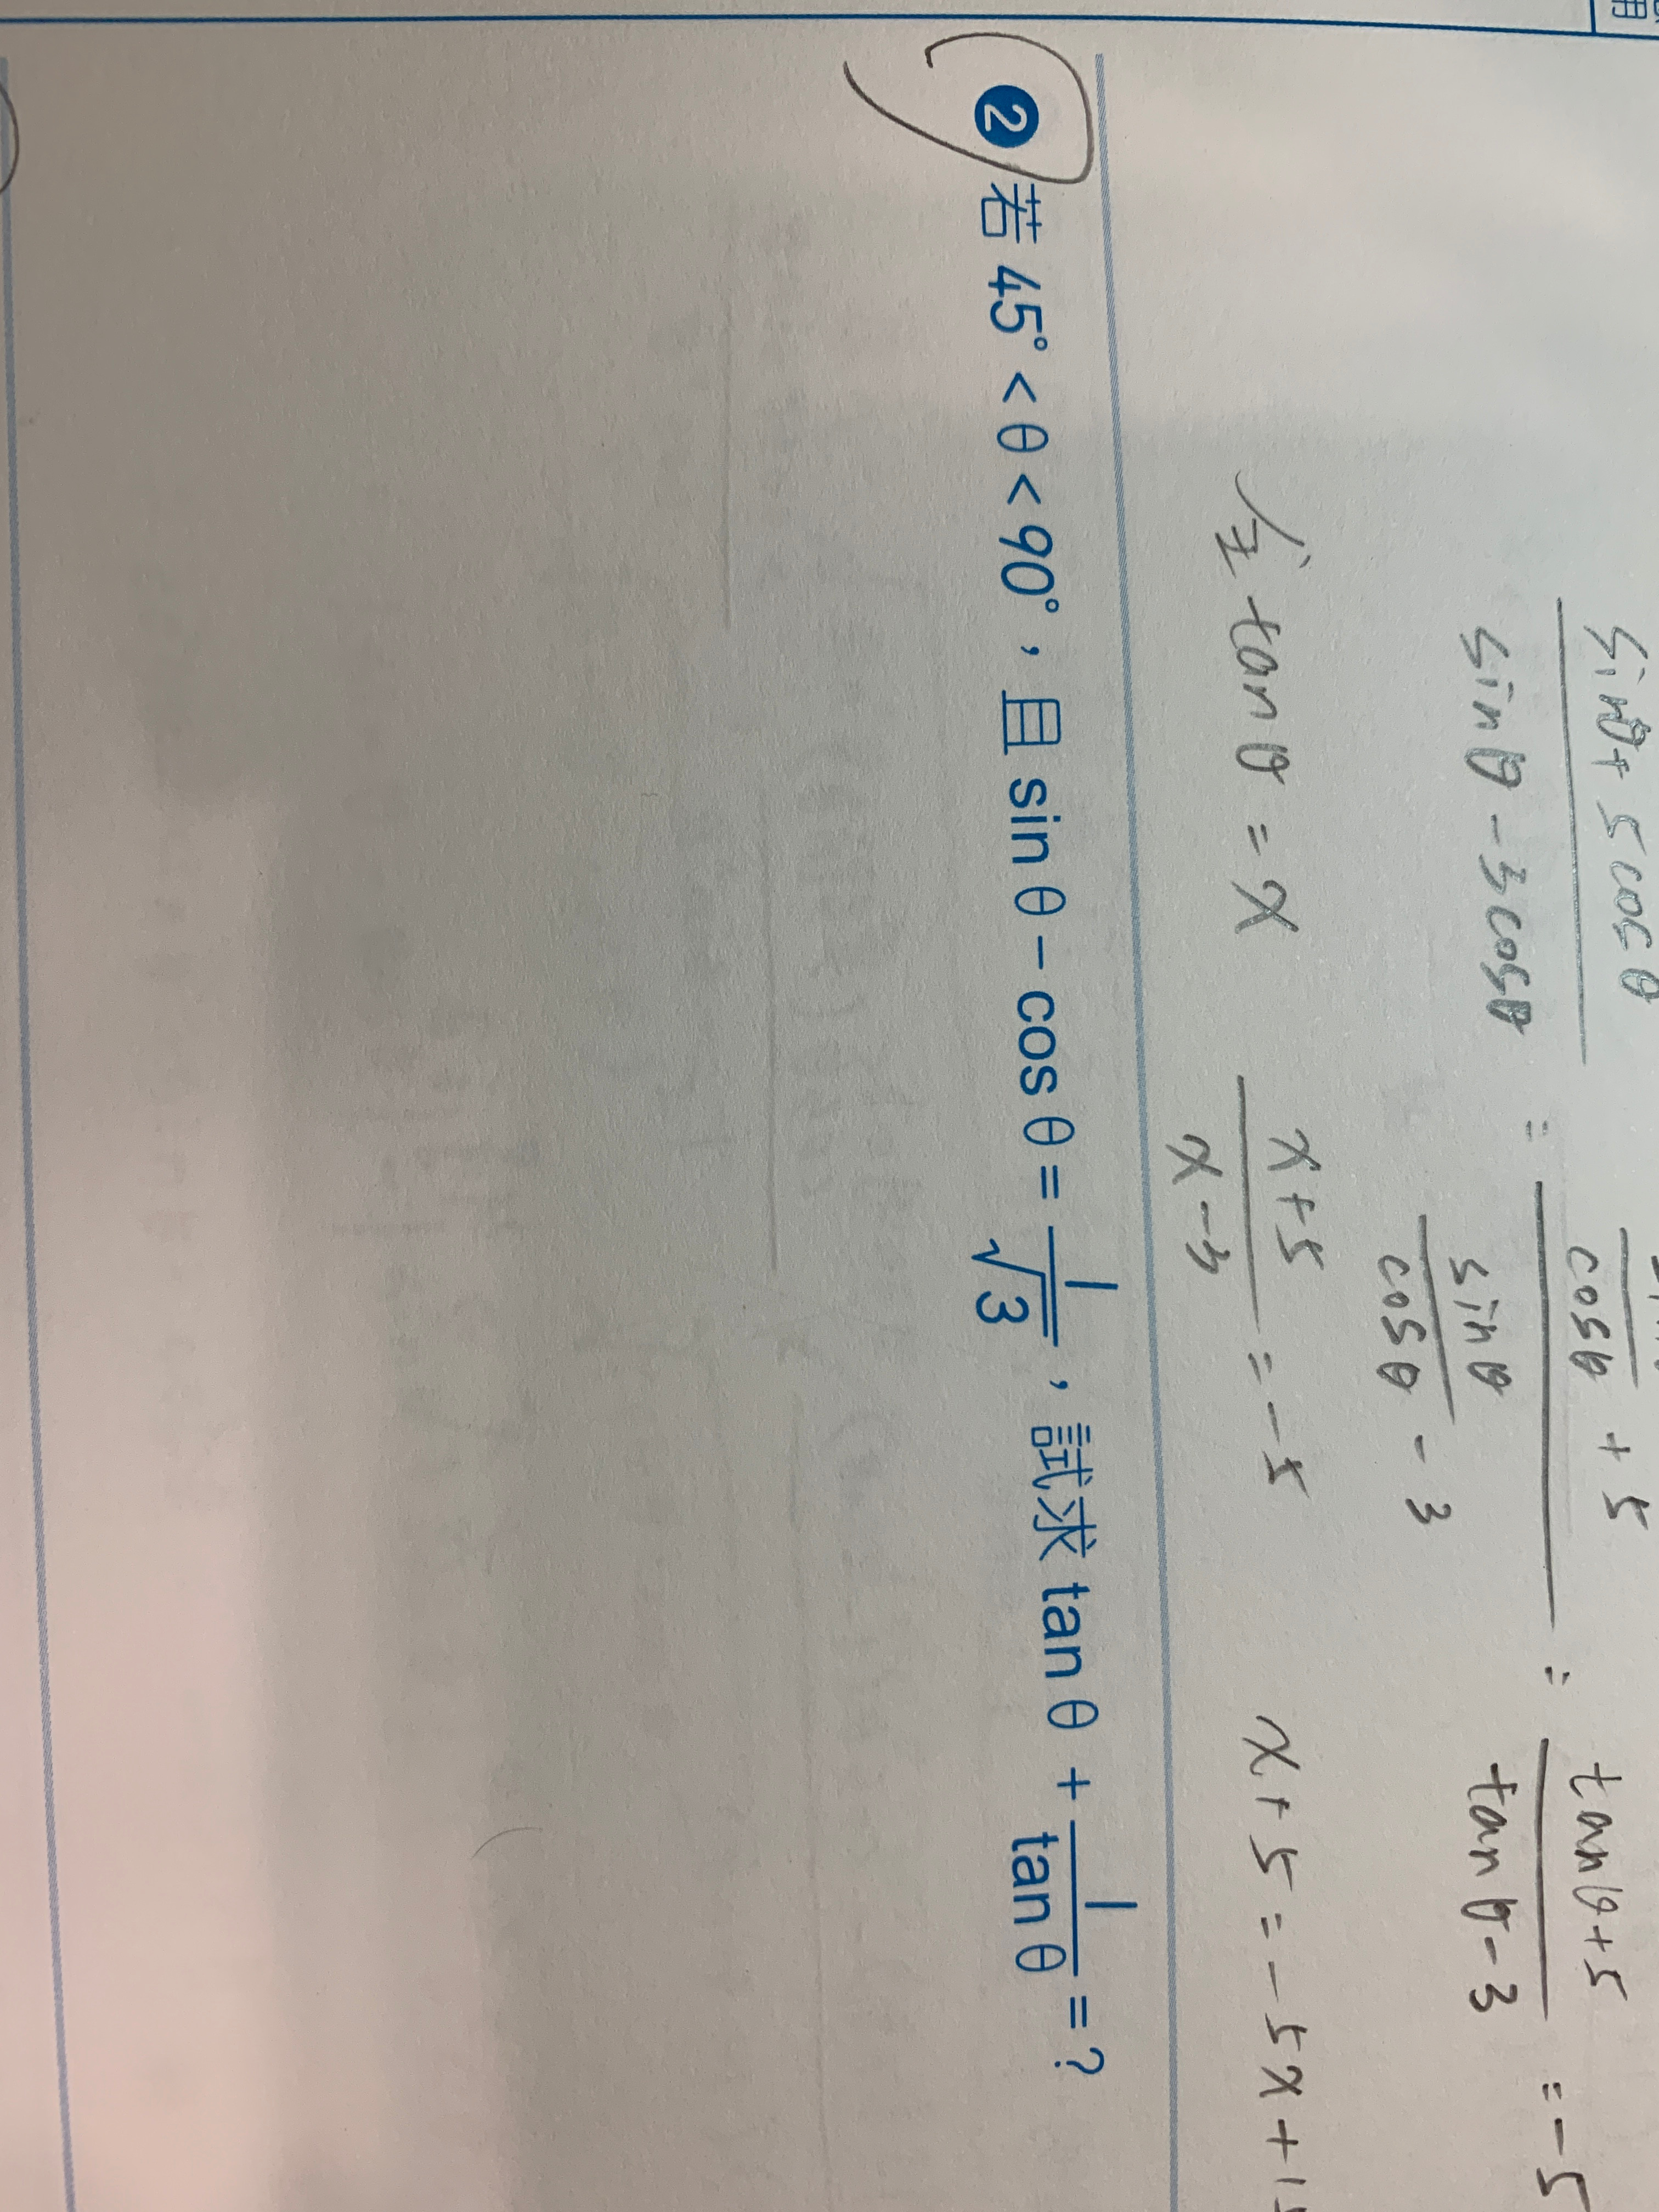 用
sinθ + 5cosθ
sinθ - 3cosθ
=
cosθ + 5
sinθ
cosθ - 3
=
tanθ+5
tanθ-3
= -5
tanθ = x
x+5
x-3
= -5
x+5 = -5x+15
❷ 若 45° < θ < 90°，且 sin θ − cos θ = 1/√3，試求 tan θ + 1/tan θ = ?